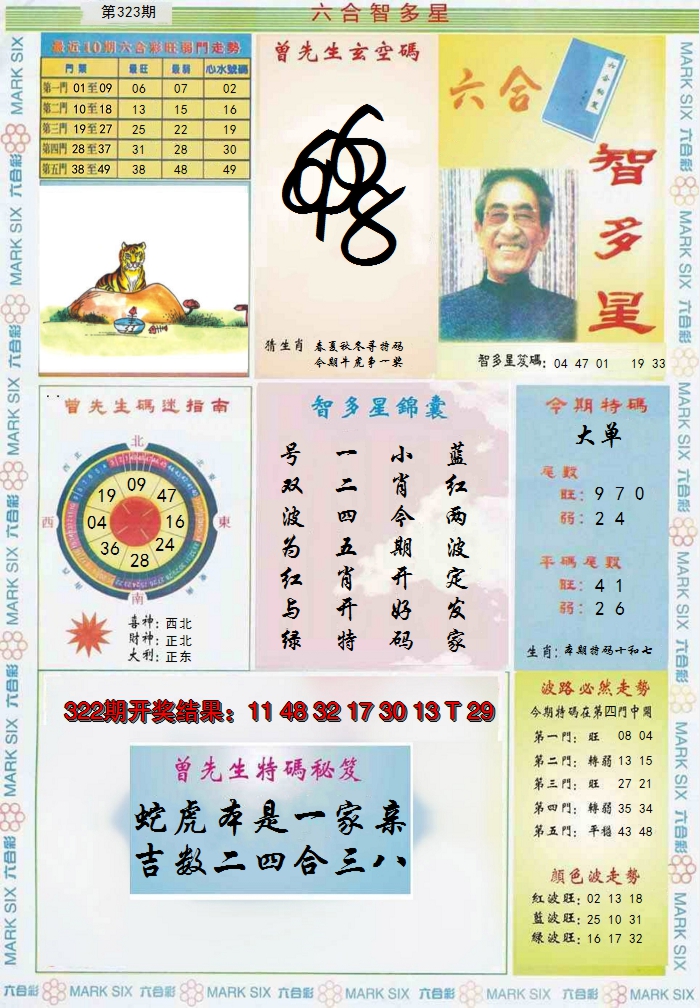 第323期
六合智多星
最近10期六合彩旺弱門走勢
門類 最旺 最弱 心水號碼
第一門 01至09 06 07 02
第二門 10至18 13 15 16
第三門 19至27 25 22 19
第四門 28至37 31 28 30
第五門 38至49 38 48 49
曾先生玄空碼
猜生肖 春夏秋冬寻特码
今期牛虎争一奖
六合
智多星
智多星笈碼: 04 47 01 19 33
曾先生碼迷指南
北
09
19 47
西 04 16 東
36 24
28
南
喜神: 西北
财神: 正北
大利: 正东
智多星錦囊
蓝红两波定发家
小肖今期开好码
一二四五肖开特
号双波为红与绿
今期特碼
大单
尾數
旺: 9 7 0
弱: 2 4
平碼尾數
旺: 4 1
弱: 2 6
生肖: 本期特码十和七
322期开奖结果: 11 48 32 17 30 13 T 29
曾先生特碼秘笈
蛇虎本是一家亲
吉数二四合三八
波路必然走勢
今期特碼在第四門中開
第一門: 旺 08 04
第二門: 轉弱 13 15
第三門: 旺 27 21
第四門: 轉弱 35 34
第五門: 平穩 43 48
顏色波走勢
紅波旺: 02 13 18
藍波旺: 25 10 31
綠波旺: 16 17 32
六合彩 MARK SIX 六合彩 MARK SIX 六合彩 MARK SIX 六合彩 MARK SIX 六合彩